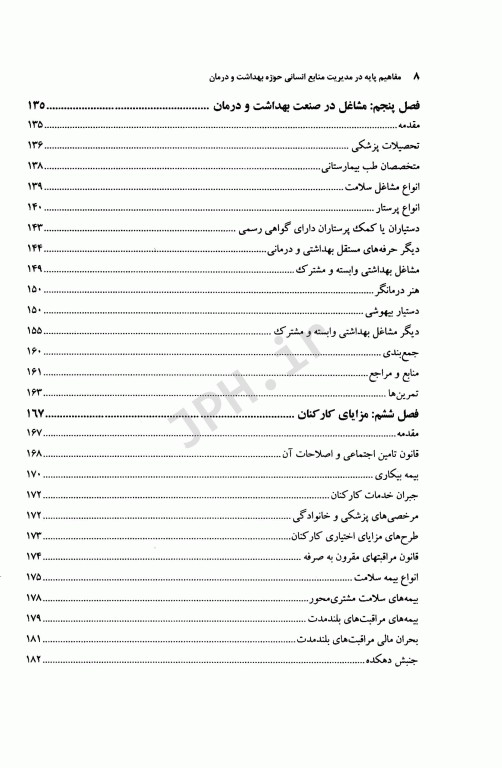 ۸ مفاهیم پایه در مدیریت منابع انسانی حوزه بهداشت و درمان
فصل پنجم: مشاغل در صنعت بهداشت و درمان ... ۱۳۵
مقدمه ... ۱۳۵
تحصیلات پزشکی ... ۱۳۶
متخصصان طب بیمارستانی ... ۱۳۸
انواع مشاغل سلامت ... ۱۳۹
انواع پرستار ... ۱۴۰
دستیاران یا کمک پرستاران دارای گواهی رسمی ... ۱۴۳
دیگر حرفه‌های مستقل بهداشتی و درمانی ... ۱۴۴
مشاغل بهداشتی وابسته و مشترک ... ۱۴۹
هنر درمانگر ... ۱۵۰
دستیار بیهوشی ... ۱۵۰
دیگر مشاغل بهداشتی وابسته و مشترک ... ۱۵۵
جمع‌بندی ... ۱۶۰
منابع و مراجع ... ۱۶۱
تمرین‌ها ... ۱۶۳
فصل ششم: مزایای کارکنان ... ۱۶۷
مقدمه ... ۱۶۷
قانون تامین اجتماعی و اصلاحات آن ... ۱۶۸
بیمه بیکاری ... ۱۷۰
جبران خدمات کارکنان ... ۱۷۲
مرخصی‌های پزشکی و خانوادگی ... ۱۷۲
طرح‌های مزایای اختیاری کارکنان ... ۱۷۳
قانون مراقبتهای مقرون به صرفه ... ۱۷۴
انواع بیمه سلامت ... ۱۷۵
بیمه‌های سلامت مشتری‌محور ... ۱۷۸
بیمه‌های مراقبت‌های بلندمدت ... ۱۷۹
بحران مالی مراقبت‌های بلندمدت ... ۱۸۱
جنبش دهکده ... ۱۸۲
JPH.ir